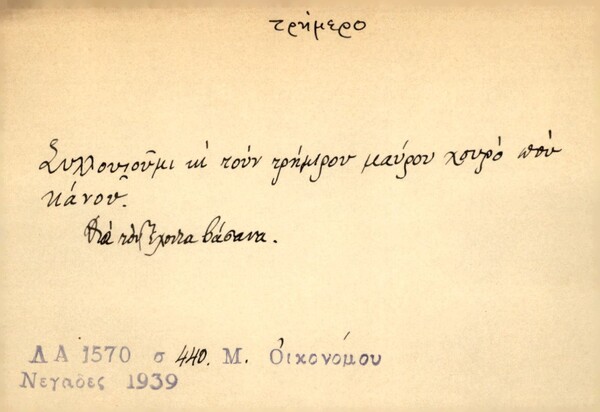 τρήμερο
Συλλουγοῦμι κι τοὺν τρήμιρου μαύρου χουρό ποὺ
κάνου.
Διὰ τοὺς ἔχοντα βάσανα.
Λ Α 1570 σ 440. Μ. Οἰκονόμου
Νεγάδες 1939